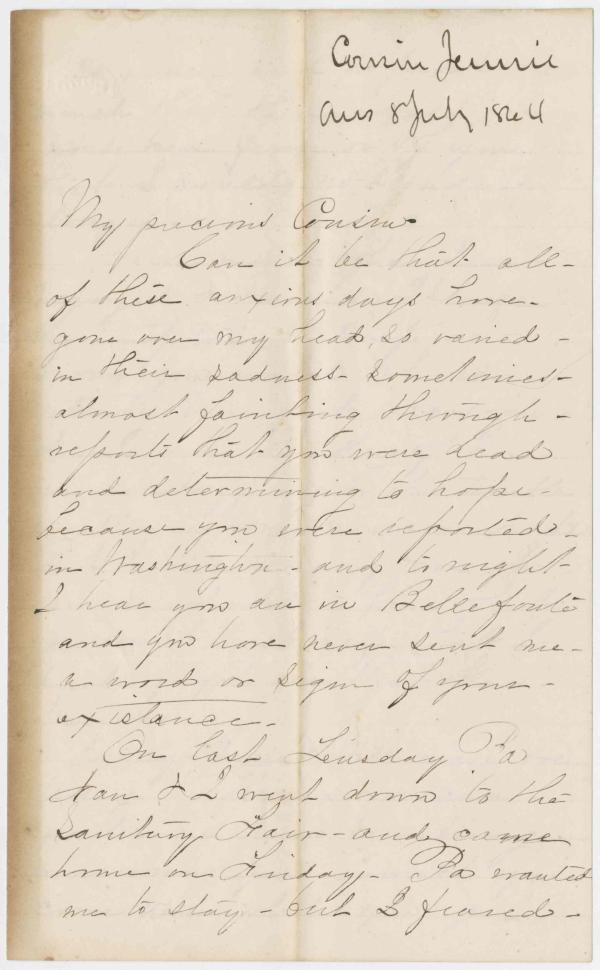 Cousin Jennie
Ans 8 July 1864
My precious Cousin
Can it be that all-
of these anxious days have-
gone over my head, so varied-
in their sadness- sometimes-
almost fainting through-
reports that you were dead
and determining to hope-
because you were reported-
in Washington- and to night-
I hear you are in Bellefonte
and you have never sent me-
a word or sign of your-
existance-
On last Teusday Pa
Nan & I went down to the
Sanitary Fair- and came
home on Friday- Pa wanted
me to stay- but I feared-